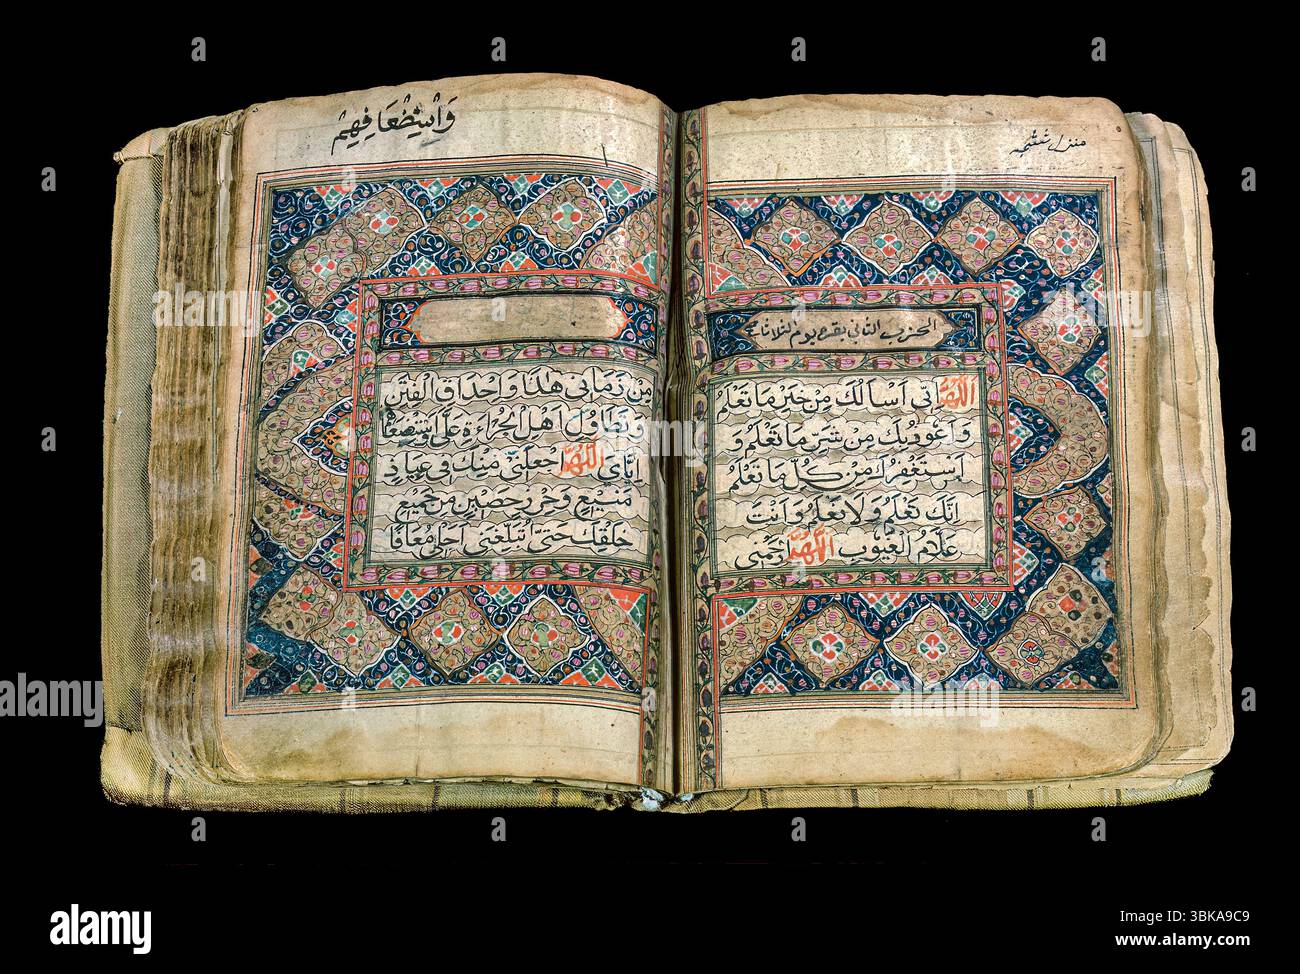 منزل ششم
الحزب الثاني يقرء يوم الثلاثاء
اَللّٰهُمَّ اِنِّي اَسْأَلُكَ مِنْ خَيْرِ مَا تَعْلَمُ
وَاَعُوذُ بِكَ مِنْ شَرِّ مَا تَعْلَمُ وَ
اَسْتَغْفِرُكَ مِنْ كُلِّ مَا تَعْلَمُ
اِنَّكَ تَعْلَمُ وَلَا نَعْلَمُ وَاَنْتَ
عَلَّامُ الْغُيُوبِ اَللّٰهُمَّ ارْحَمْنِي
وَاسْتِضْعَافِهِمْ
مِنْ زَمَانِي هٰذَا وَاِحْدَاقِ الْفِتَنِ
وَتَطَاوُلِ اَهْلِ الْجُرْاَةِ عَلَيَّ
اِيَّايَ اَللّٰهُمَّ اجْعَلْنِي مِنْكَ فِي عِيَاذٍ
مَنِيعٍ وَحِرْزٍ حَصِينٍ مِنْ جَمِيعِ
خَلْقِكَ حَتّٰى تُبَلِّغَنِي اَجَلِي مُعَافًا
alamy
Image ID: 3BKA9C9
www.alamy.com